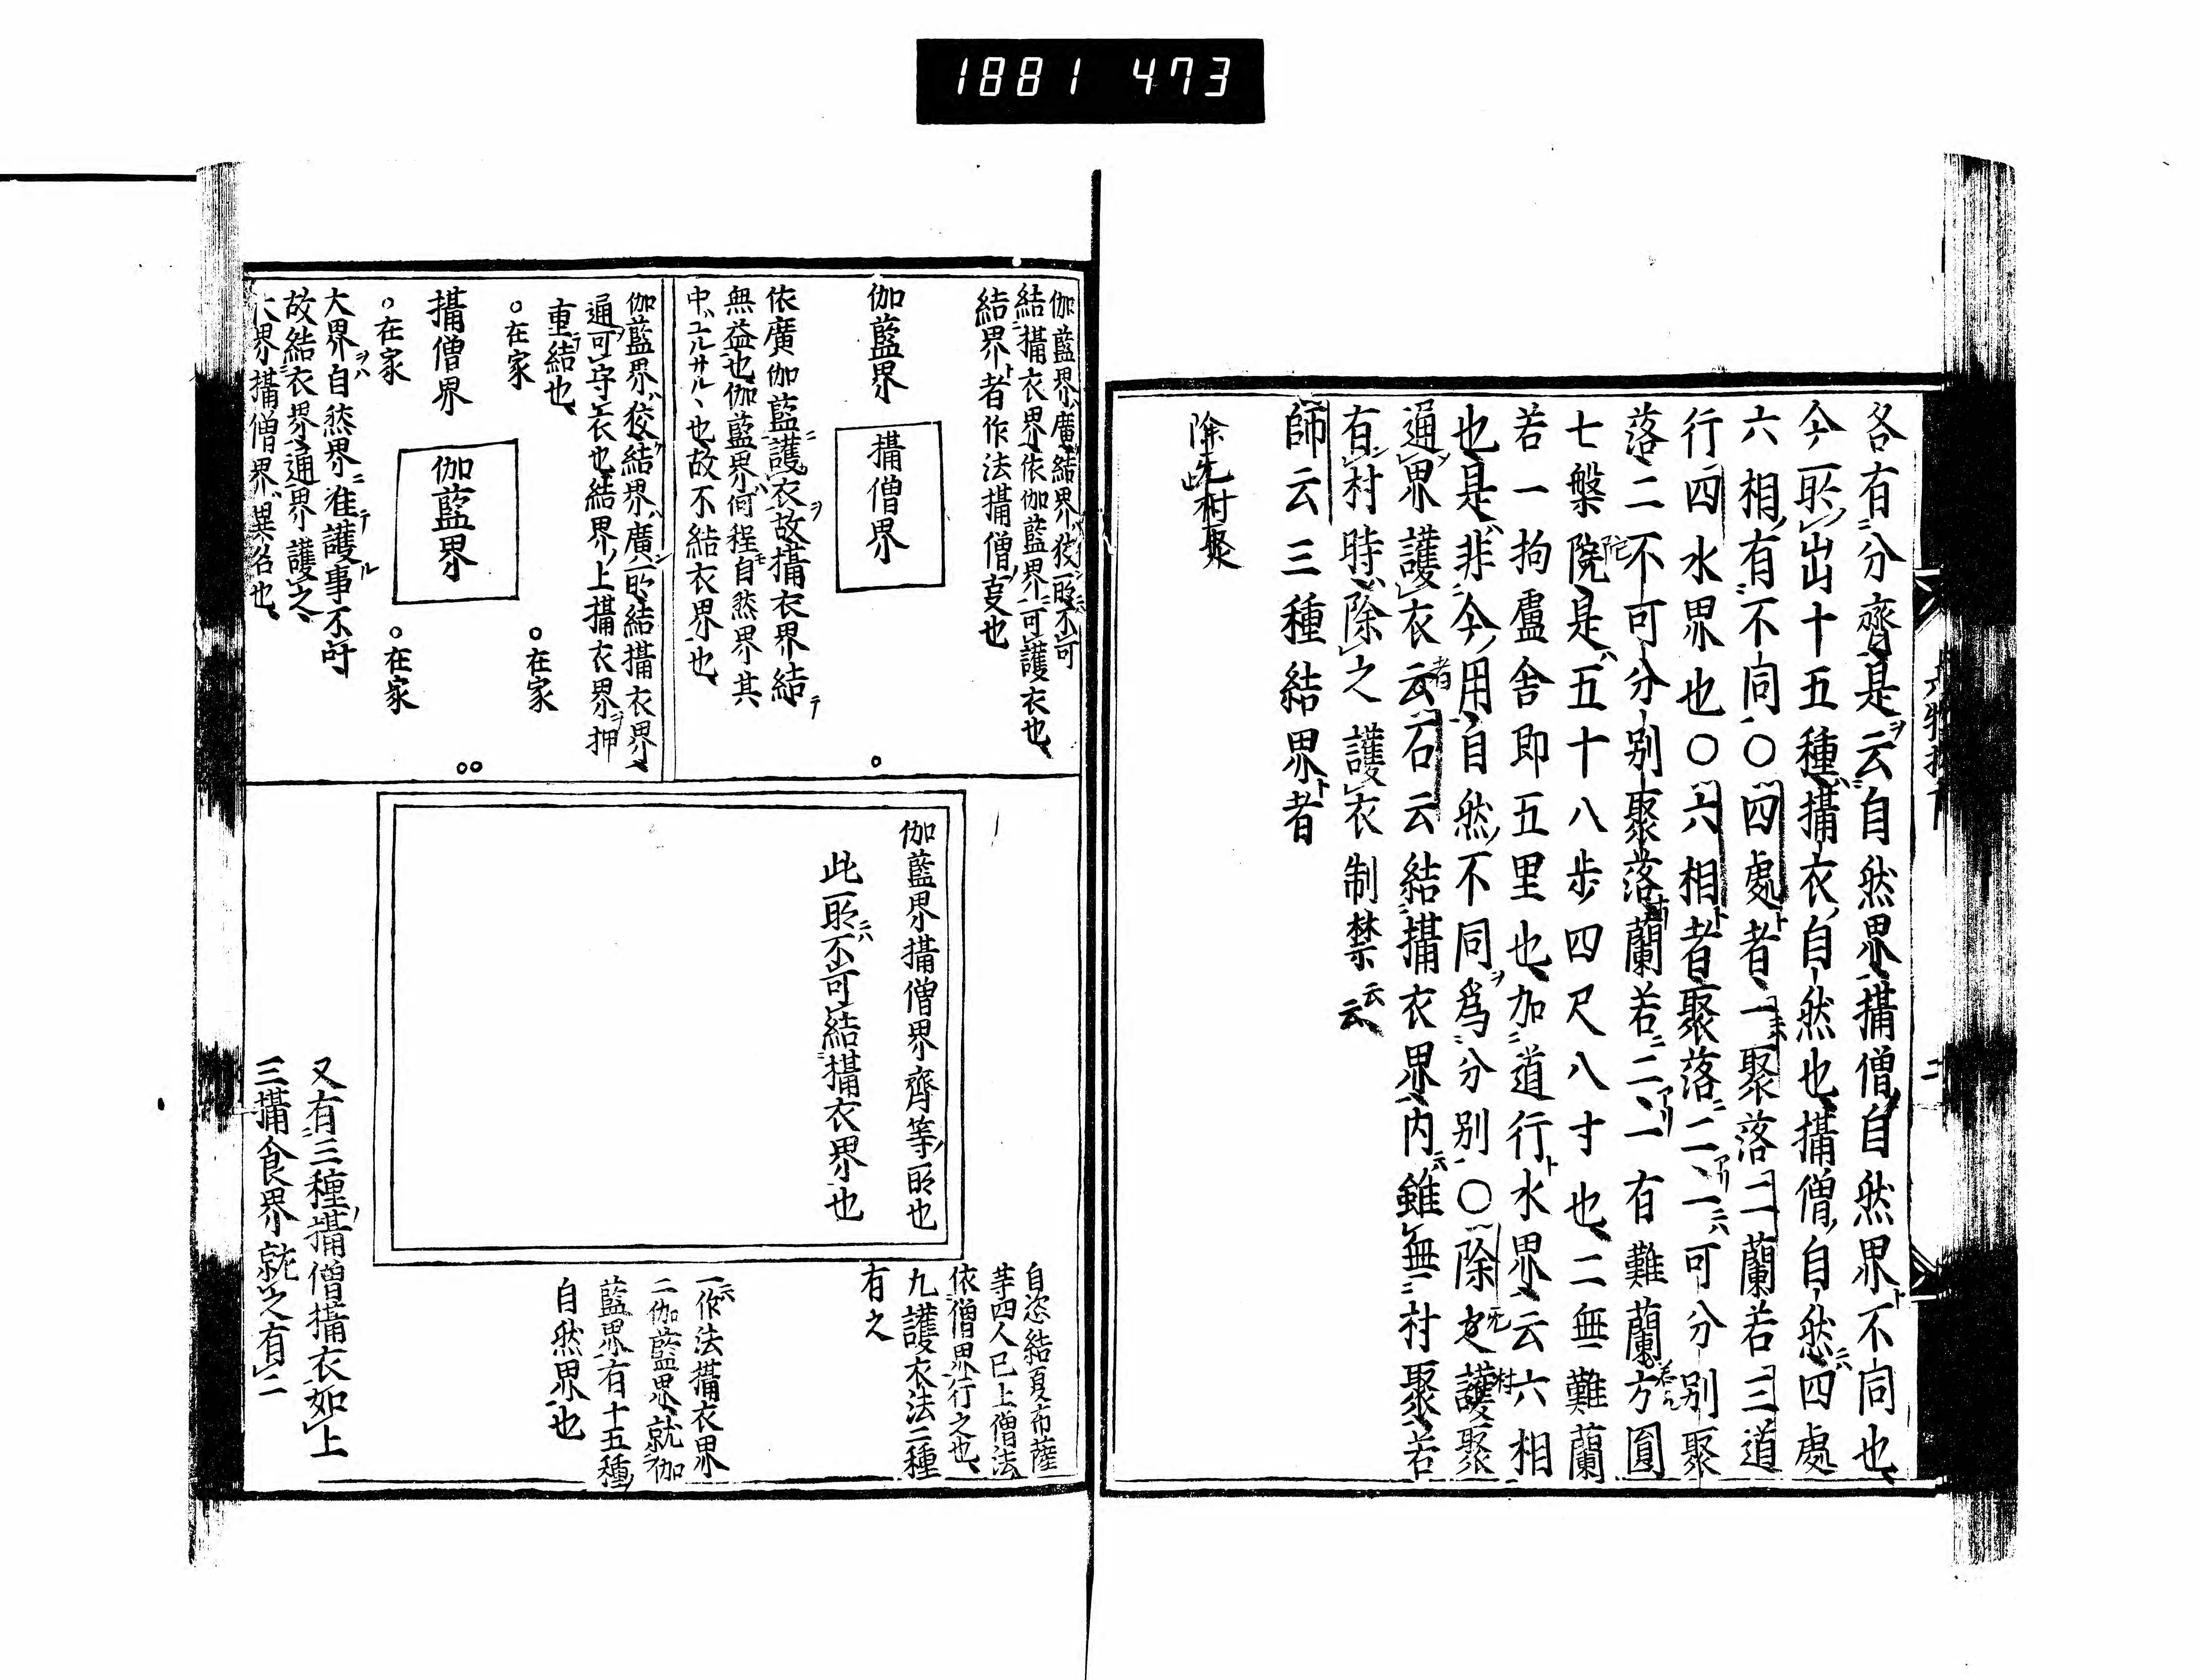 1881 473
各有分齊是云自然界攝僧自然界不同也
今所出十五種攝衣自然也攝僧自然四處
六相有不同○四處者一聚落二蘭若三道
行四水界也○六相者聚落二一可分別聚
落二不可分別聚落蘭若二一有難蘭方圓
七槃院是五十八步四尺八寸也二無難蘭
若一拘盧舍即五里也加道行水界云六相
也是非今用自然不同爲分別○除 護聚
通界護衣云石云結攝衣界内雖無村聚若
有村時除之護衣制禁云云
師云三種結界者
除 村聚
伽藍界廣結界狡所不可
結攝衣界依伽藍界可護衣也
結界者作法攝僧 也
伽藍界
攝僧界
依廣伽藍護衣故攝衣界結
無益也伽藍界何程自然界其
中ユルサル丶也故不結衣界也
伽藍界狡結界廣所結攝衣界
通可守衣也結界上攝衣界押
重結也
○在家
○在家
攝僧界
伽藍界
○在家
○在家
大界自然界准護事不許
故結衣界通界護之
大界攝僧界異名也
伽藍界攝僧界齊等所也
此所不可結攝衣界也
自恣結夏布薩
等四人已上僧法
依僧界行之也
九護衣法二種
有之
一作法攝衣界
二伽藍界就伽
藍界有十五種
自然界也
又有三種攝僧攝衣如上
三攝食界就之有二